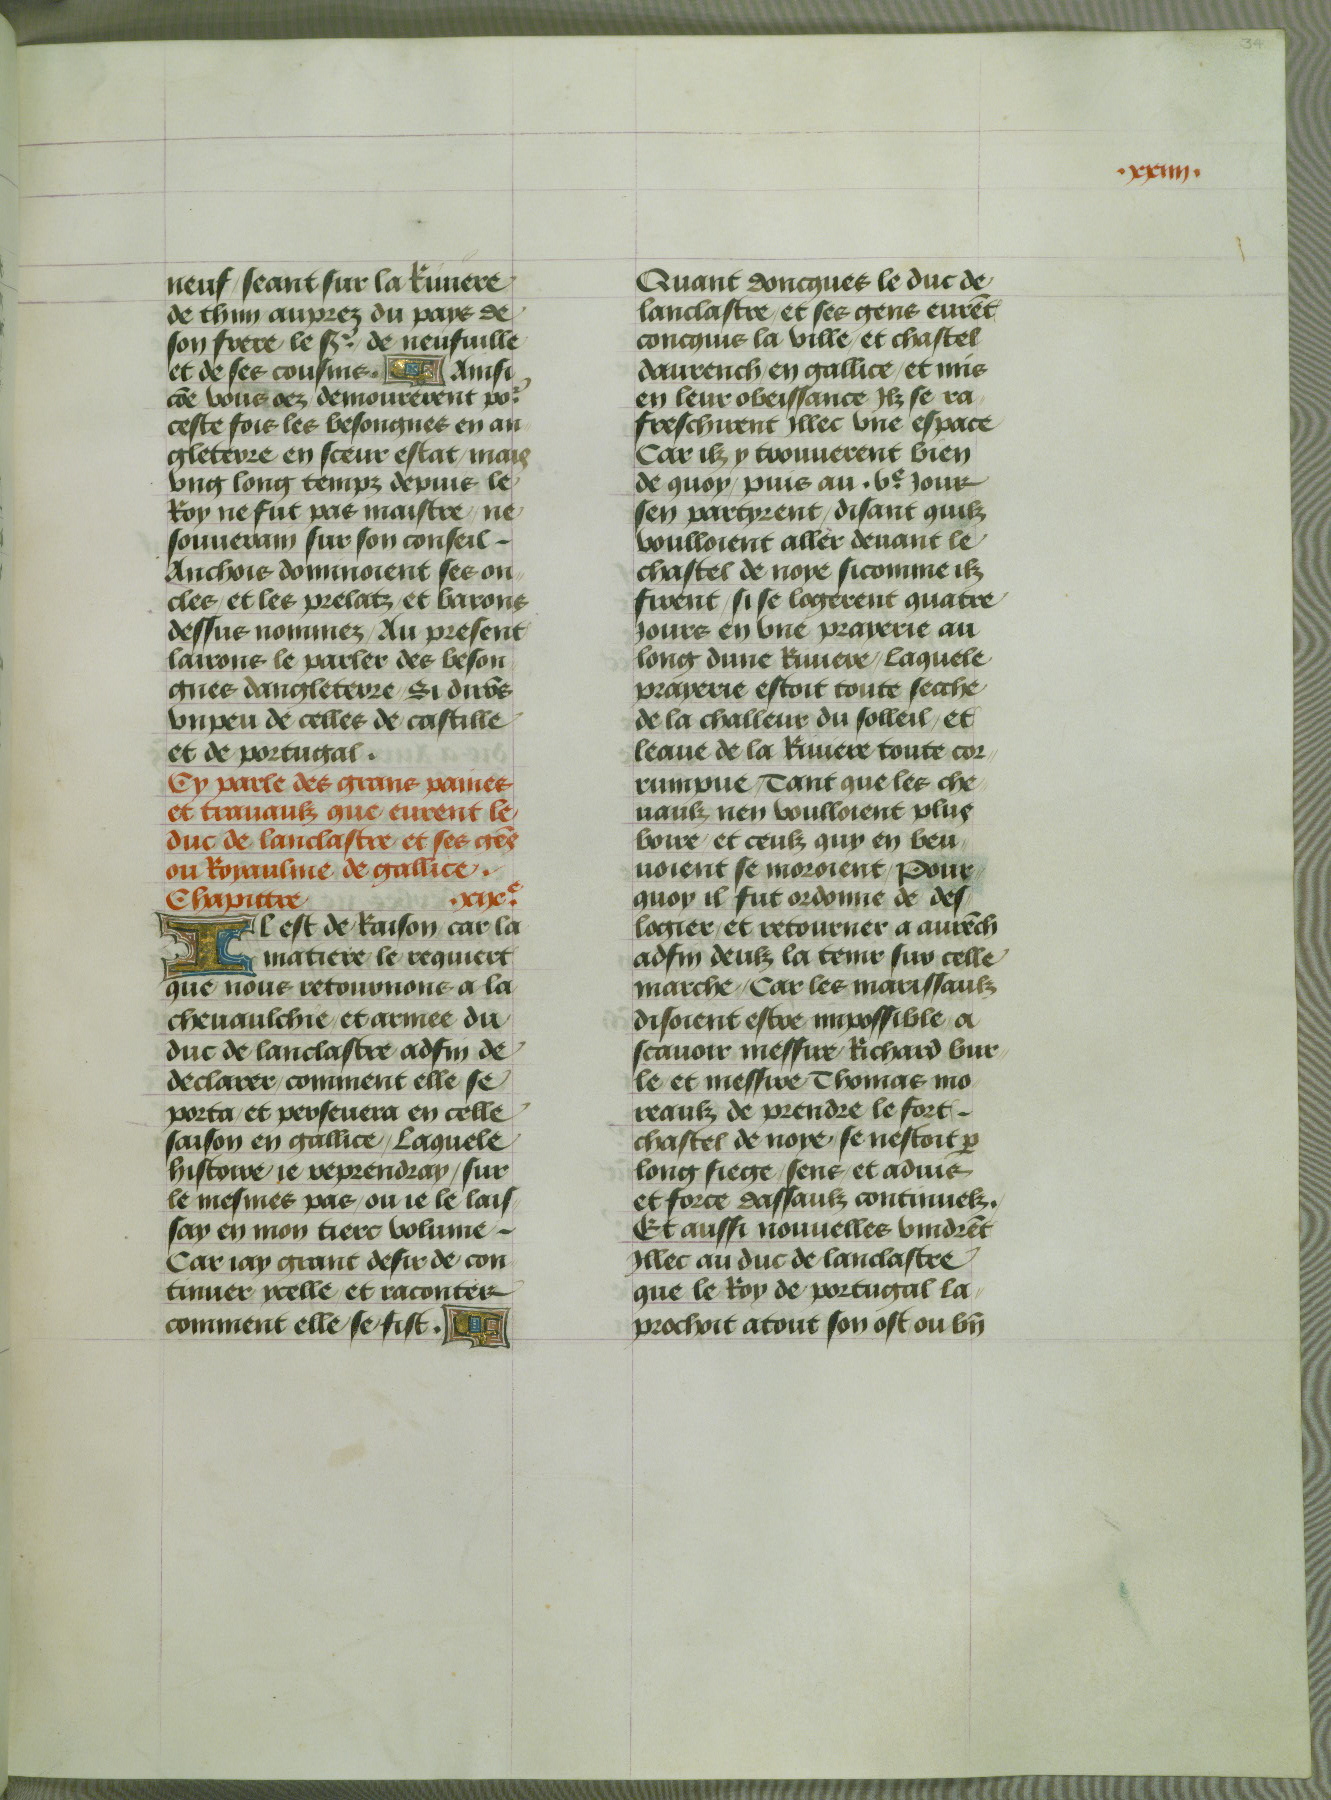 34
.xxiiii.
neuf / seant sur la Riuiere
de thin auprez du pays de
son frere le sr. de neufuille
et de ses cousins. Ainsi
cõe vous oez demourerent por
ceste fois les besongnes en an
gleterre en sceur estat / mais
vng long tempz depuis le
Roy ne fut pas maistre / ne
souuerain sur son conseil -
Anchois dominoient ses on
cles / et les prelatz / et barons
dessus nommez / Au present
lairons le parler des beson
gnes dangleterre / Si dirõs
vnpeu de celles de castille
et de portugal .
Cy parle des grans paines
et trauaulz que eurent le
duc de lanclastre et ses gẽs
ou Royaulme de gallice .
Chapittre .xije.
Il est de Raison car la
matiere le requiert
que nous retournons a la
cheuaulchie / et armee du
duc de lanclastre adfin de
declarer / comment elle se
porta / et perseuera en celle
saison en gallice / Laquele
histoire ie reprendray / sur
le mesmes pas / ou ie le lais
say en mon tierc volume -
Car iay grant desir de con
tinuer ycelle / et raconter
comment elle / se / fist .
Quant doncques le duc de
lanclastre / et ses gens eurẽt
concquis la ville / et chastel
daurench en gallice / et mis
en leur obeissance Ilz se ra
freschirent Illec vne espace
Car ilz y trouuerent bien
de quoy / puis au .ve. Jour
sen partyrent / disant quilz
voulloient aller deuant le
chastel de noye sicomme ilz
firent / si se logerent quatre
Jours en vne prayerie au
long dune Riuiere / Laquele
prayerie estoit toute secche
de la challeur du solleil / et
leaue de la Riuiere toute cor
rumpue / Tant que les che
uaulz nen voulloient plus
boire / et ceulz quy en beu
uoient se moroient / Pour
quoy il fut ordonne de des
logier / et retourner a aurẽch
adfin deulz la tenir sur celle
marche / Car les marissaulz
disoient estre impossible / a
scauoir messire Richard bur
le et messire Thomas mo
reaulz de prendre le fort -
chastel de noye / se nestoit p̱
long siege / sens / et aduis
et force dassaulz continuelz.
Et aussi nouuelles vindrẽt
Illec au duc de lanclastre
que le Roy de portugal la
prochoit atout son ost ou bñ